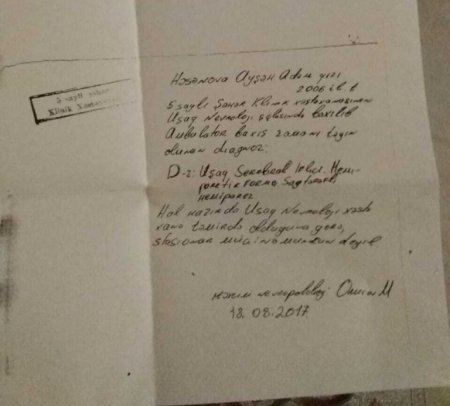 5 saylı şəhər
Klinik Xəstəxanası
Həsənova Ayşən Adəm qızı
2006 il t
5 saylı Şəhər Klinik xəstəxanasının
Uşaq Nevroloji şöbəsində
Ambulator baxış zamanı təyin
olunan diaqnoz:
D-z: Uşaq Serebral İflici. Hemi-
paretik forma Sağtərəfli
hemiparez
Hal hazırda Uşaq Nevroloji xəstə
xana təmirdə olduğuna görə,
stasionar müainə mümkün deyil
Həkim nevropatoloq
18.08.2017